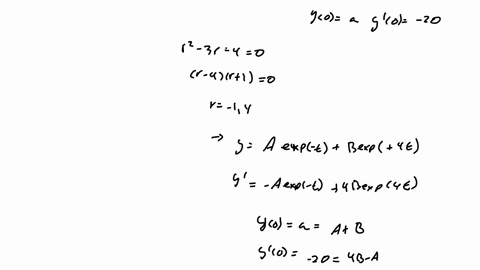 y(0) = a y'(0) = -20
r² - 3r - 4 = 0
(r-4)(r+1) = 0
r = -1, 4
→ y = A exp(-t) + B exp(+4t)
y' = -A exp(-t) + 4B exp(4t)
y(0) = a = A + B
y'(0) = -20 = 4B - A